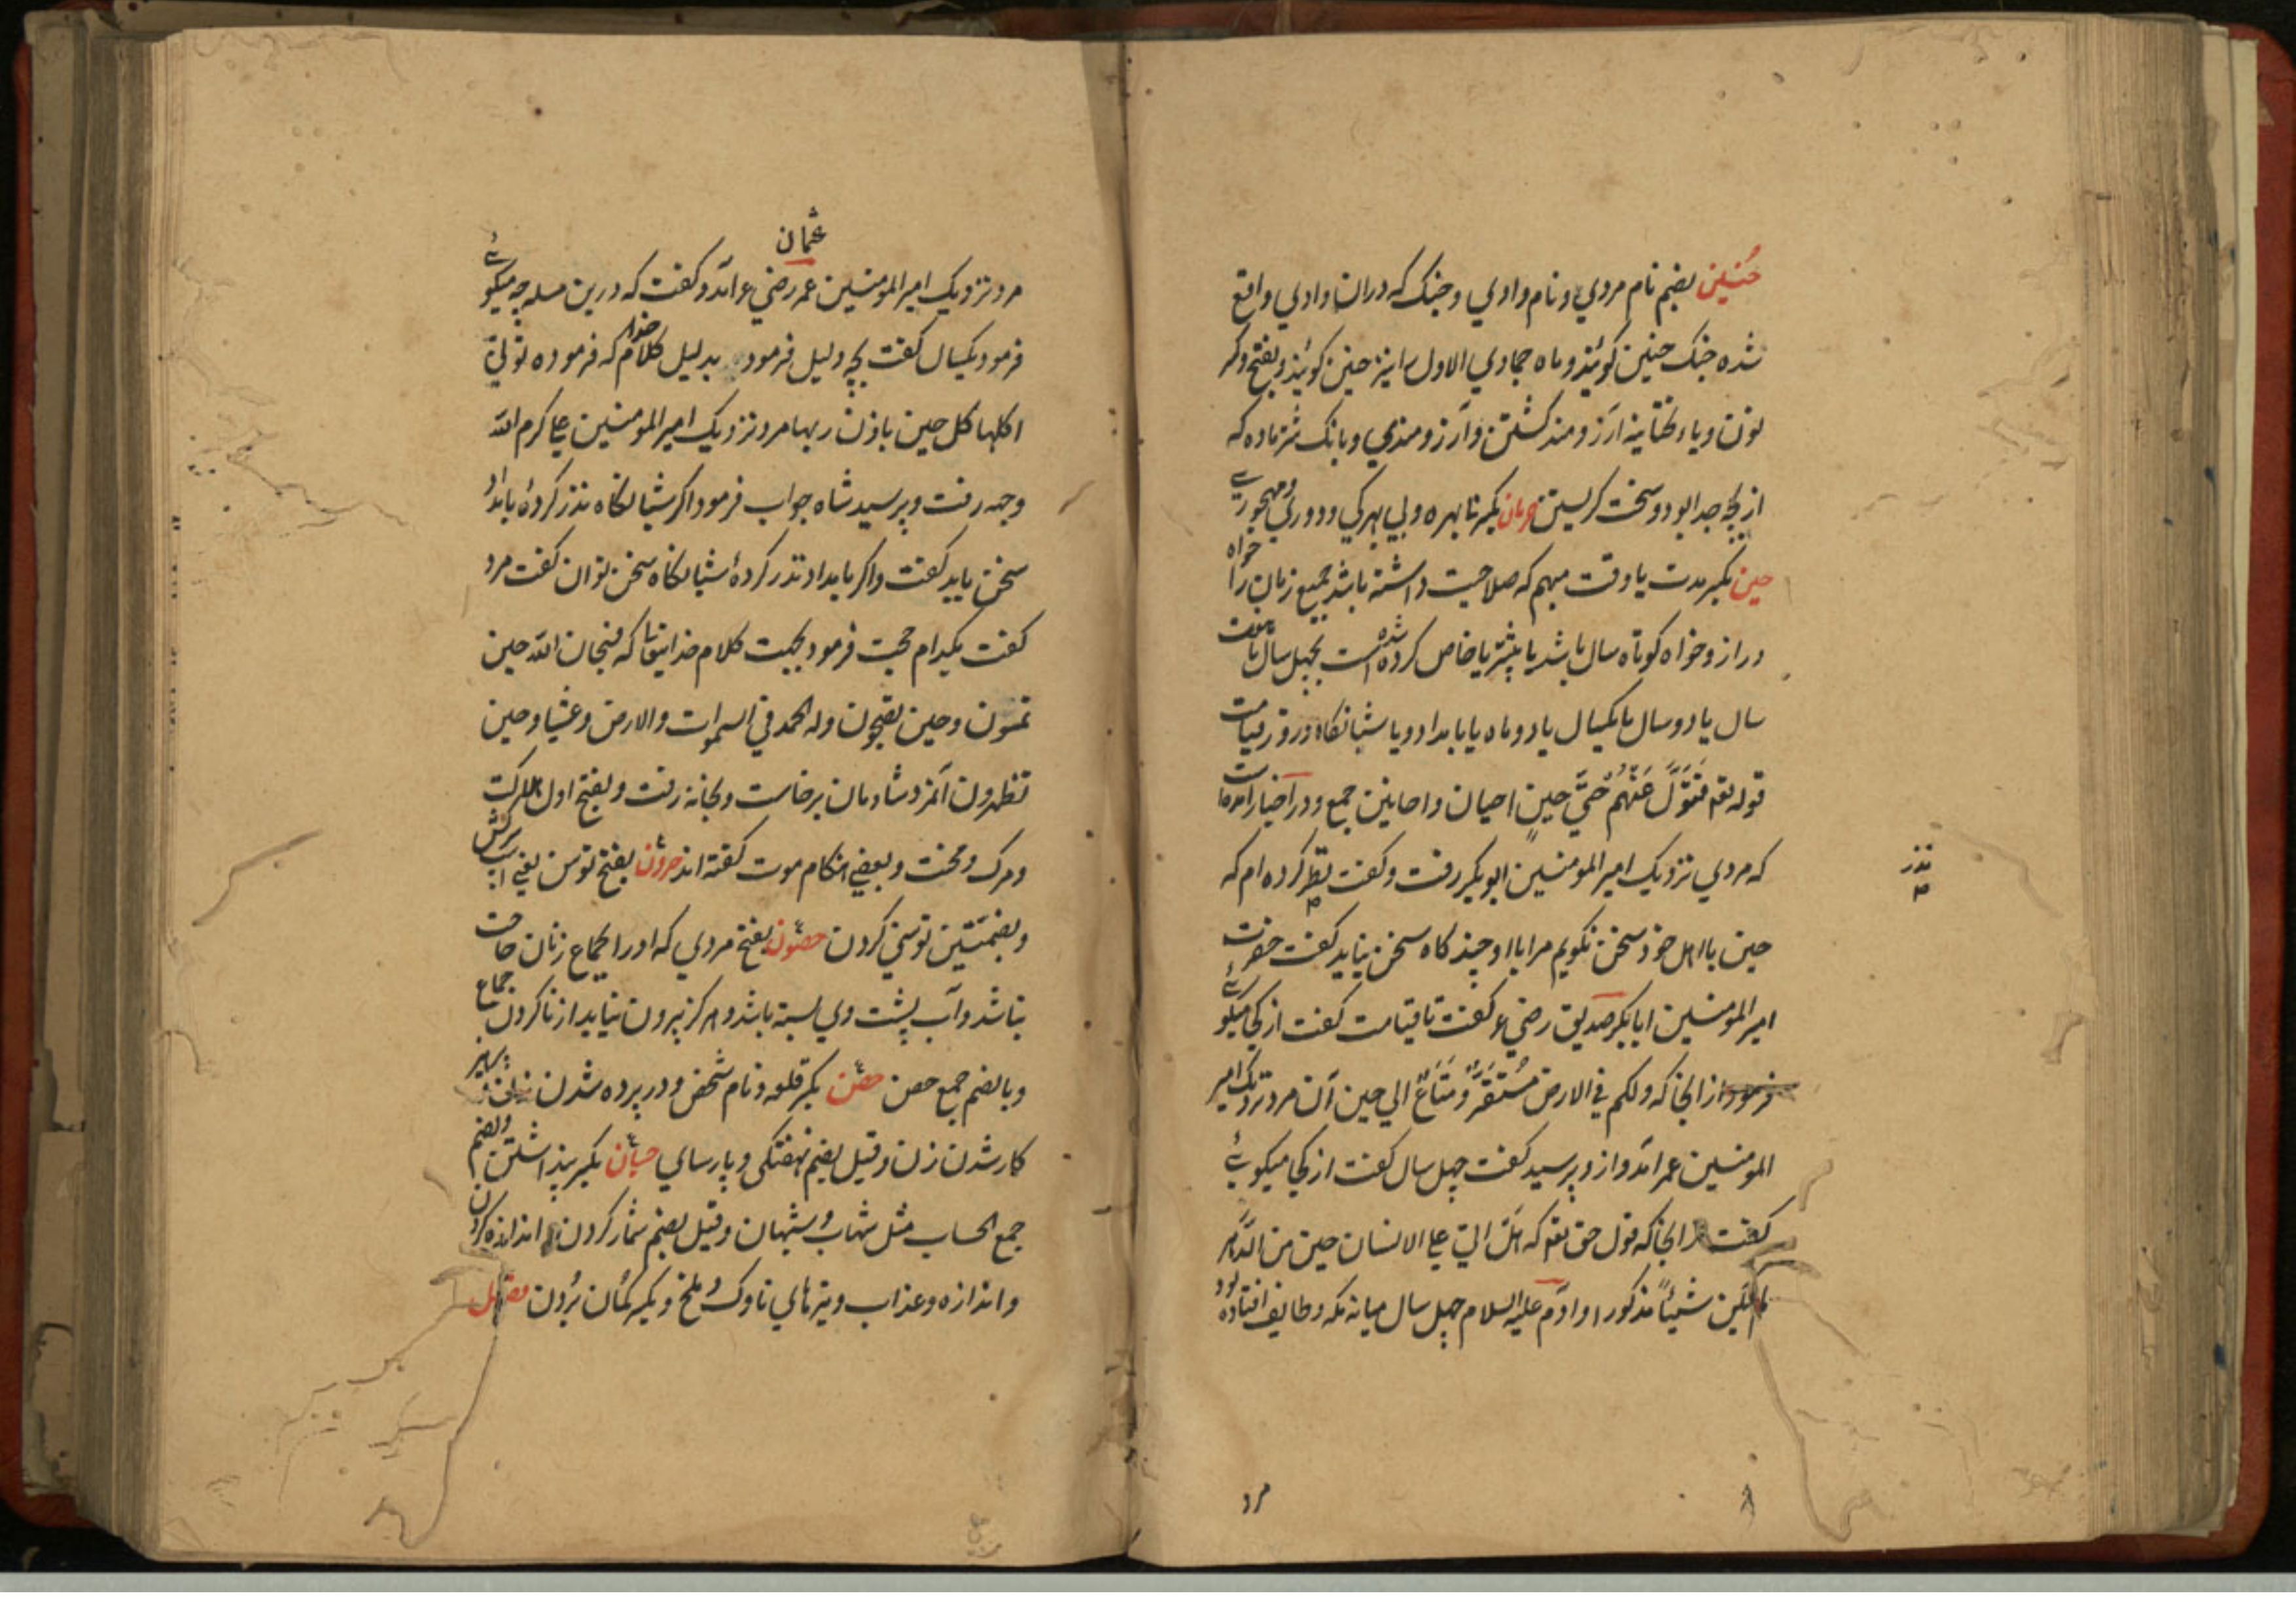 حُنین بضم نام مردي و نام وادي و جنک که دران وادي واقع
شده جنک حنین کویند و ماه جمادي الاول را نیز حنین کویند و بفتح و کسر
نون و یاء تحتانیه آرزومند کشتن و آرزومندي و بانک شتر ماده که
از بچه جدا بود و سخت کریستن حرمان بکسر نا بهره و بي بهرکي و دوري و مهجوري
حین بکسر مدت یا وقت مبهم که صلاحیت داشته باشد جمیع زمان را خواه
دراز و خواه کوتاه سال باشد یا بیشتر یا خاص کرده شده است بچهل سال یا هفت
سال یا دو سال یا یکسال یا دو ماه یا بامداد و یا شبانکاه و روز قیامت
قوله تع فَتَوَلَّ عَنْهُمْ حَتَّی حینٍ احیان و احایین جمع و در اخبار آمده است
که مردي نزدیک امیر المومنین ابو بکر رفت و کفت نظر کرده ام که
نذر
حین با اهل خود سخن نکویم مرا با او چند کاه سخن نباید کفت حضرت
امیر المومنین ابابکر صدیق رضي ع کفت تا قیامت کفت از کجا میکوئے
فرمود از انجا که ولکم في الارض مُسْتَقَرٌّ وَمَتَاعٌ الي حین آن مرد نزدیک امیر
المومنین عمر آمد و ازو پرسید کفت چهل سال کفت از کجا میکوئے
کفت از انجا که قول حق تع که هل اتي علي الانسان حین من الدهر
لم یکن شیئاً مذکورا و آدم علیه السلام چهل سال میانه مکه و طایف افتاده بود
مرد
عثمان
مرد نزدیک امیر المومنین عمر رضي ع آمد و کفت که درین مسله چه میکوئے
فرمود یکسال کفت بچه دلیل فرمود بدلیل کلام خدا که فرموده توتي
اکلها کل حین باذن ربها مرد نزدیک امیر المومنین علي کرم الله
وجهه رفت و پرسید شاه جواب فرمود اکر شبانکاه نذر کردهٔ بامداد
سخن باید کفت و اکر بامداد نذر کردهٔ شبانکاه سخن توان کفت مرد
کفت بکدام حجت فرمود بحجت کلام خدایتعا که فسبحان الله حین
تمسون و حین تصبحون و له الحمد في السموات و الارض و عشیا و حین
تظهرون آنمرد شادمان برخاست و بخانه رفت و بفتح اول هلاکت
و مرک و محنت و بعضي هنکام موت کفته اند حرون بفتح توسن یعني اسب سرکش
و بضمتین توسني کردن حصون بفتح مردي که او را بجماع زنان حاجت
نباشد و آب پشت وي بسته باشد و هرکز بیرون نیاید از نا کردن جماع
و بالضم جمع حصن حصن بکسر قلعه و نام شخص و در پرده شدن زنان
کار شدن زن و قیل بضم نهفتکي و پارساي حسبان بکسر پنداشتن و بضم
جمع الحساب مثل شهاب و شهبان و قیل بضم شمار کردن اندازه کردن
و اندازه و عذاب و تیرهاي ناوک و ملخ و بکسر کمان بُردن